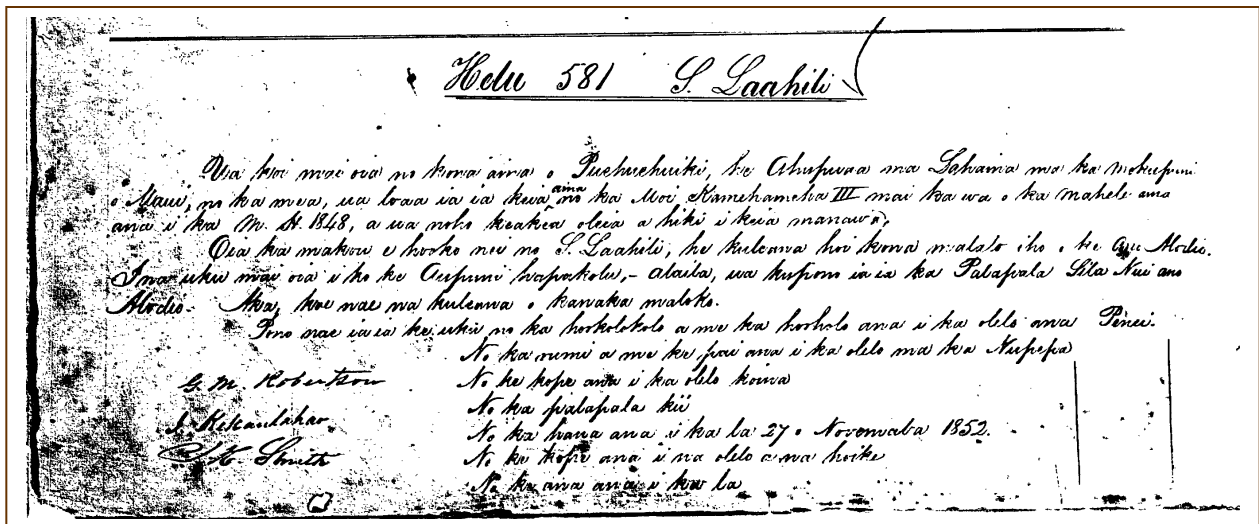 Helu 581 S. Laahili
Ua koi mai oia no kona aina o Puehuehuiki, he Ahupuaa ma Lahaina ma ka Mokupuni
o Maui, no ka mea, ua loaa ia ia keia aina no ka Moi Kamehameha III mai ka wa o ka mahele aina
ana i ka M. H. 1848, a ua noho keakea oleia a hiki i keia manawa,
Oia ka makou e hooko nei no S. Laahili, he kuleana hoi kona malalo iho o ke ano Alodio.
Ina uku mai oia i ko ke Aupuni hapakolu, - alaila, ua kupono ia ia ka Palapala Sila Nui ano
Alodio. Aka, koe nae na kuleana o kanaka maloko.
Pono nae ia ia ke uku no ka hookolokolo a me ka hooholo ana i ka olelo ana Penei.
No ka rumi a me ke pai ana i ka olelo ma ka Nupepa
G. M. Robertson No ke kope ana i ka olelo koina
No ka palapala kii
J. Kekaulahao No ka hana ana i ka la 27 o Novemaba 1852.
J. H. Smith No ke kope ana i na olelo a na hoike
No ke ana ana i ka la